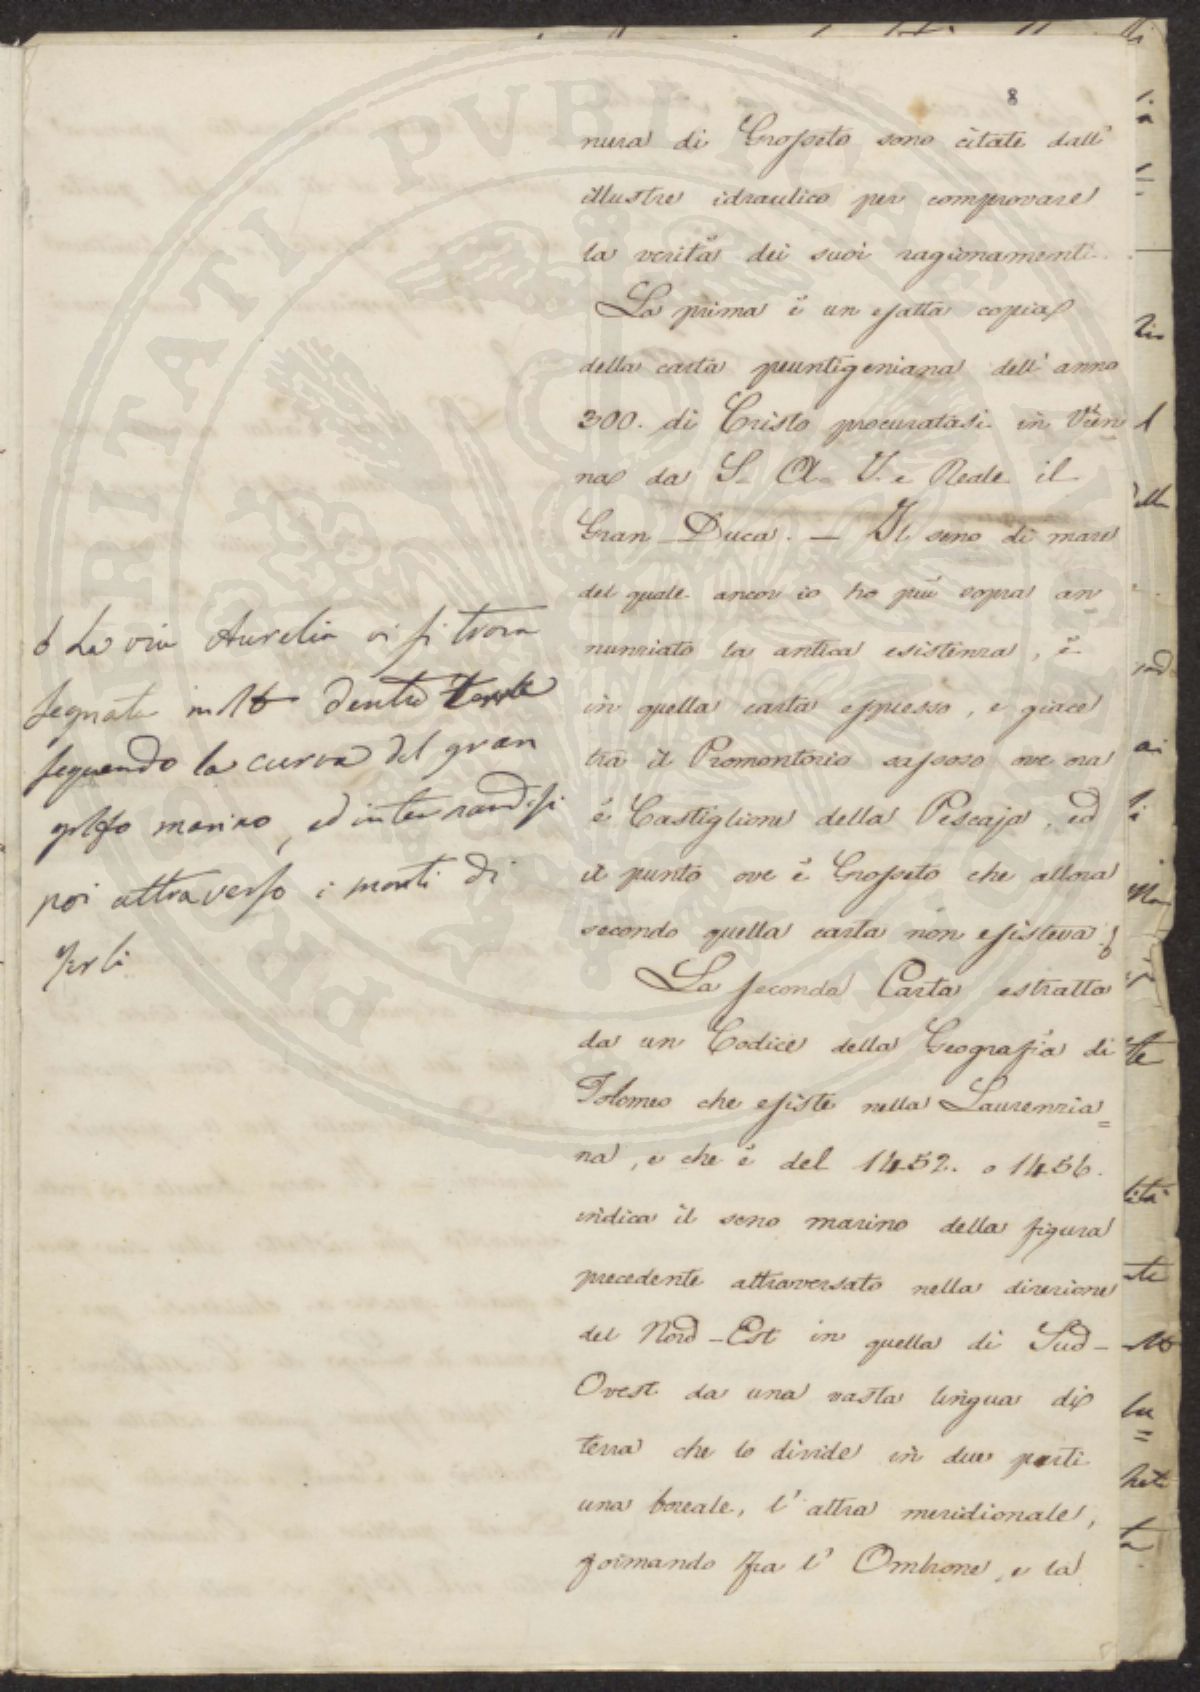 8
nura di Grosseto sono citate dall'
illustre idraulico per comprovare
la verità dei suoi ragionamenti.
La prima è un esatta copia
della carta peuntigeriana dell' anno
300. di Cristo procuratasi in Vien
na da S. A. I. e Reale il
Gran Duca. — Il seno di mare
del quale ancor io ho più sopra an
nunziato la antica esistenza, è
in quella carta espresso, e giace
tra il Promontorio sassoso ove ora
è Castiglione della Pescaja, ed
il punto ove è Grosseto che allora
secondo quella carta non esisteva
La seconda Carta estratta
da un Codice della Geografia di
Tolomeo che esiste nella Laurenzia=
na, e che è del 1452. o 1456.
indica il seno marino della figura
precedente attraversato nella direzione
del Nord-Est in quella di Sud-
Ovest da una vasta lingua di
terra che lo divide in due parti
una boreale, l'altra meridionale,
formando fra l' Ombrone, e la
La via Aurelia vi si trova
segnata molto dentro terra
seguendo la curva del gran
golfo marino, ed internandosi
poi attraverso i monti di
PVBLICAE